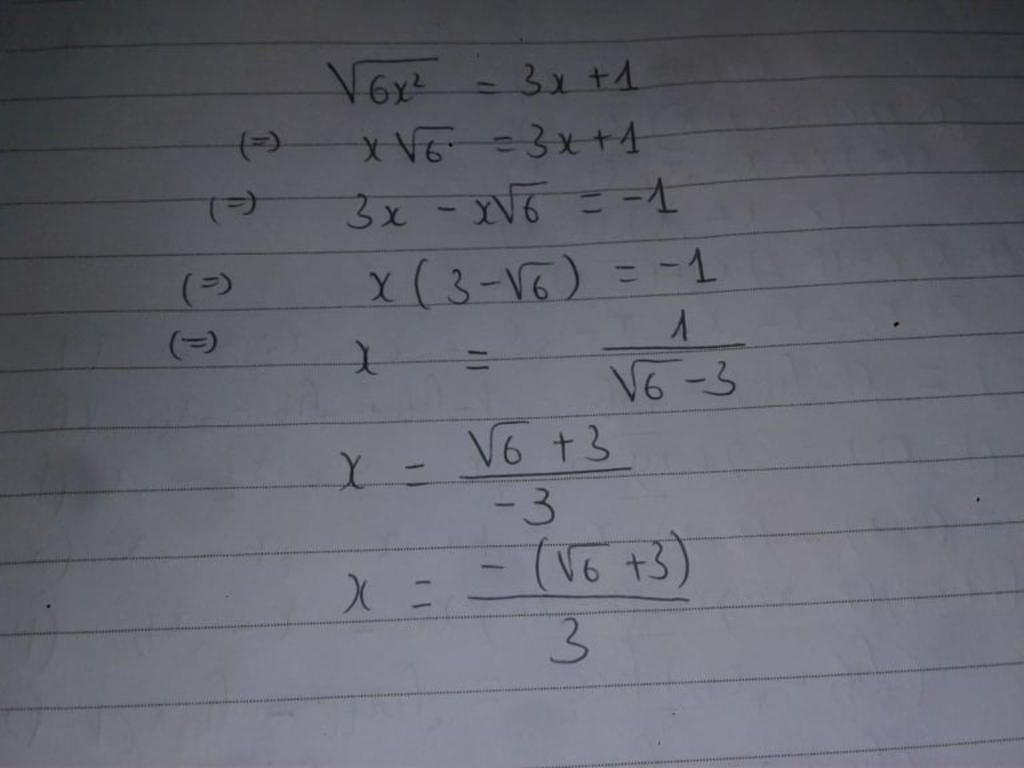 √6x² = 3x+1
(=) x√6 = 3x+1
(=) 3x - x√6 = -1
(=) x(3-√6) = -1
(=) x = 1/(√6-3)
x = (√6+3)/-3
x = -(√6+3)/3